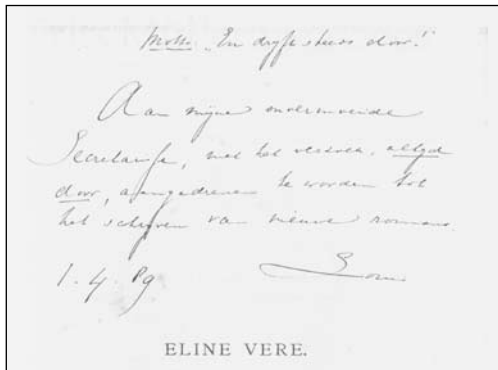 Motto „En dryft steeds door!"
Aan mijne onvermoeide
Secretaresse, met het verzoek, altyd
door, aangedreven te worden tot
het schryven van nieuwe romans.
1.4.89 Louis
ELINE VERE.